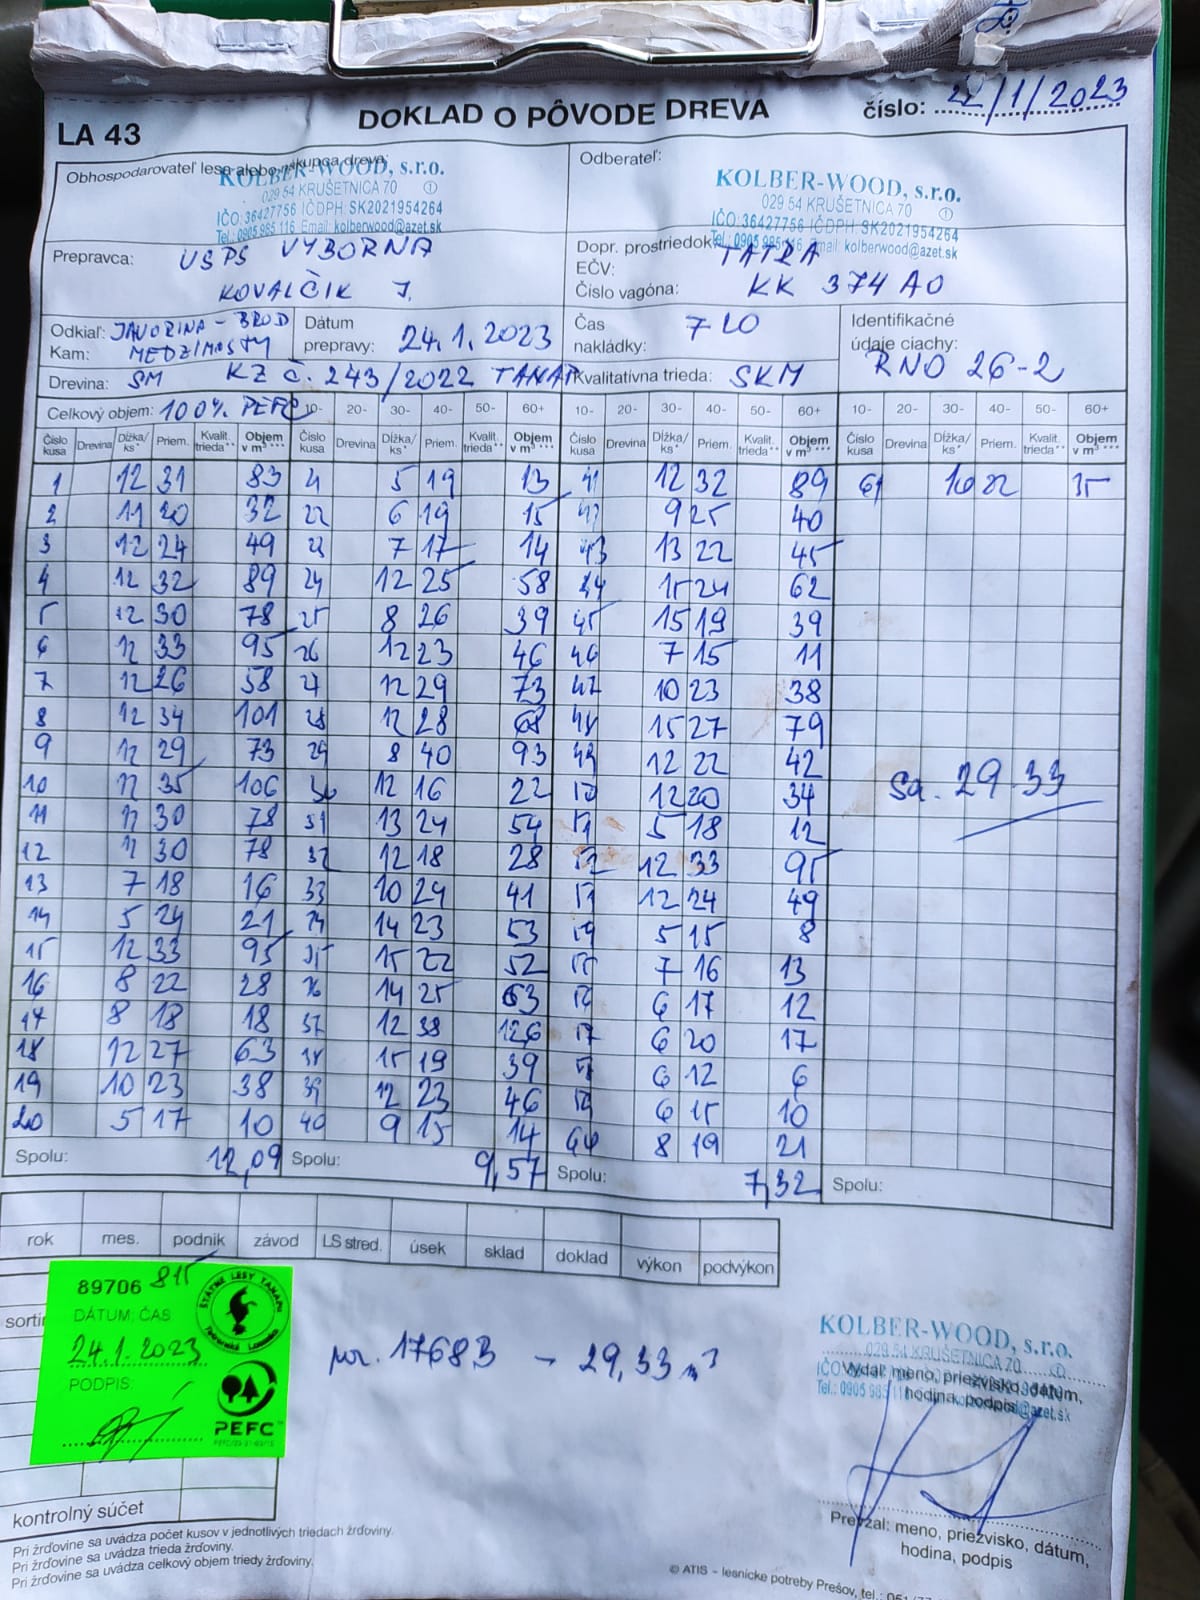 LA 43
DOKLAD O PÔVODE DREVA
číslo: 22/1/2023
Obhospodarovateľ lesa alebo nákupca dreva:
KOLBER-WOOD, s.r.o.
029 54 KRUŠETNICA 70 ①
IČO: 36427756 IČDPH: SK2021954264
Tel.: 0905 985 116 Email: kolberwood@azet.sk
Odberateľ:
KOLBER-WOOD, s.r.o.
029 54 KRUŠETNICA 70 ①
IČO: 36427756 IČDPH: SK2021954264
Tel.: 0905 985 116 Email: kolberwood@azet.sk
Prepravca: USPS VYBORNA
KOVALČIK J.
Dopr. prostriedok: TATRA
EČV:
Číslo vagóna: KK 374 AO
Odkiaľ: JAVORINA - BROD
Kam: MEDZIMOSTY
Dátum
prepravy: 24.1.2023
Čas
nakládky: 7 20
Identifikačné
údaje ciachy:
RNO 26-2
Drevina: SM KZ č. 243/2022 TANAP
Kvalitatívna trieda: SKM
Celkový objem: 100% PEFC 10- 20- 30- 40- 50- 60+ 10- 20- 30- 40- 50- 60+ 10- 20- 30- 40- 50- 60+
Číslo kusa Drevina Dĺžka/ ks* Priem. Kvalit. trieda** Objem v m³ *** Číslo kusa Drevina Dĺžka/ ks* Priem. Kvalit. trieda** Objem v m³ *** Číslo kusa Drevina Dĺžka/ ks* Priem. Kvalit. trieda** Objem v m³ *** Číslo kusa Drevina Dĺžka/ ks* Priem. Kvalit. trieda** Objem v m³ ***
1 12 31 83 21 5 19 13 41 12 32 89 61 10 22 35
2 11 20 32 22 6 19 15 42 9 25 40
3 12 24 49 23 7 17 14 43 13 22 45
4 12 32 89 24 12 25 58 44 15 24 62
5 12 30 78 25 8 26 39 45 15 19 39
6 12 33 95 26 12 23 46 46 7 15 11
7 12 26 58 27 12 29 73 47 10 23 38
8 12 34 101 28 12 28 68 48 15 27 79
9 12 29 73 29 8 40 93 49 12 22 42
10 12 35 106 30 12 16 22 50 12 20 34
11 12 30 78 31 13 24 54 51 5 18 12
12 12 30 78 32 12 18 28 52 12 33 95
13 7 18 16 33 10 24 41 53 12 24 49
14 5 24 21 34 14 23 53 54 5 15 8
15 12 33 95 35 15 22 52 55 7 16 13
16 8 22 28 36 14 25 63 56 6 17 12
17 8 18 18 37 12 38 126 57 6 20 17
18 12 27 63 38 15 19 39 58 6 12 6
19 10 23 38 39 12 23 46 59 6 15 10
20 5 17 10 40 9 15 14 60 8 19 21
Sa. 29.33
Spolu: 12,09 Spolu: 9,57 Spolu: 7,32 Spolu:
rok mes. podnik závod LS stred. úsek sklad doklad výkon podvýkon
89706 815
DÁTUM; ČAS
24.1.2023
PODPIS:
ŠTÁTNE LESY TANAPU
PEFC
sorti
por. 17683 - 29,33 m³
KOLBER-WOOD, s.r.o.
029 54 KRUŠETNICA 70 ①
Vydal: meno, priezvisko, dátum,
hodina, podpis
Prevzal: meno, priezvisko, dátum,
hodina, podpis
kontrolný súčet
Pri žrďovine sa uvádza počet kusov v jednotlivých triedach žrďoviny.
Pri žrďovine sa uvádza trieda žrďoviny.
Pri žrďovine sa uvádza celkový objem triedy žrďoviny.
© ATIS – lesnícke potreby Prešov, tel.: 051/77